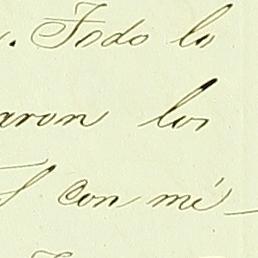 . Todo lo
aron los
con mi